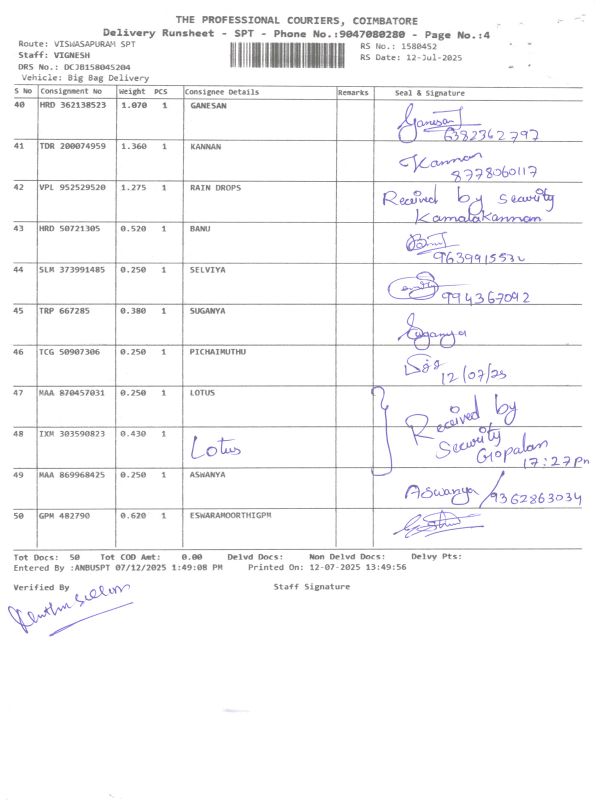 THE PROFESSIONAL COURIERS, COIMBATORE
Delivery Runsheet - SPT - Phone No.:9047080280 - Page No.:4
Route: VISWASAPURAM SPT
RS No.: 1580452
Staff: VIGNESH
RS Date: 12-Jul-2025
DRS No.: DCJB158045204
Vehicle: Big Bag Delivery
S No Consignment No Weight PCS Consignee Details Remarks Seal & Signature
40 HRD 362138523 1.070 1 GANESAN Ganesan
6382362797
41 TDR 200074959 1.360 1 KANNAN Kannan
8778060117
42 VPL 952529520 1.275 1 RAIN DROPS Received by Security
Kamalakannan
43 HRD 50721305 0.520 1 BANU
9639915532
44 SLM 373991485 0.250 1 SELVIYA
994367092
45 TRP 667285 0.380 1 SUGANYA Suganya
46 TCG 50907306 0.250 1 PICHAIMUTHU
12/07/25
47 MAA 870457031 0.250 1 LOTUS Received by
48 IXM 303590823 0.430 1 Lotus Security
Gopalan
17:27Pm
49 MAA 869968425 0.250 1 ASWANYA Aswanya / 9362863034
50 GPM 482790 0.620 1 ESWARAMOORTHIGPM
Tot Docs: 50 Tot COD Amt: 0.00 Delvd Docs: Non Delvd Docs: Delvy Pts:
Entered By :ANBUSPT 07/12/2025 1:49:08 PM Printed On: 12-07-2025 13:49:56
Verified By Staff Signature